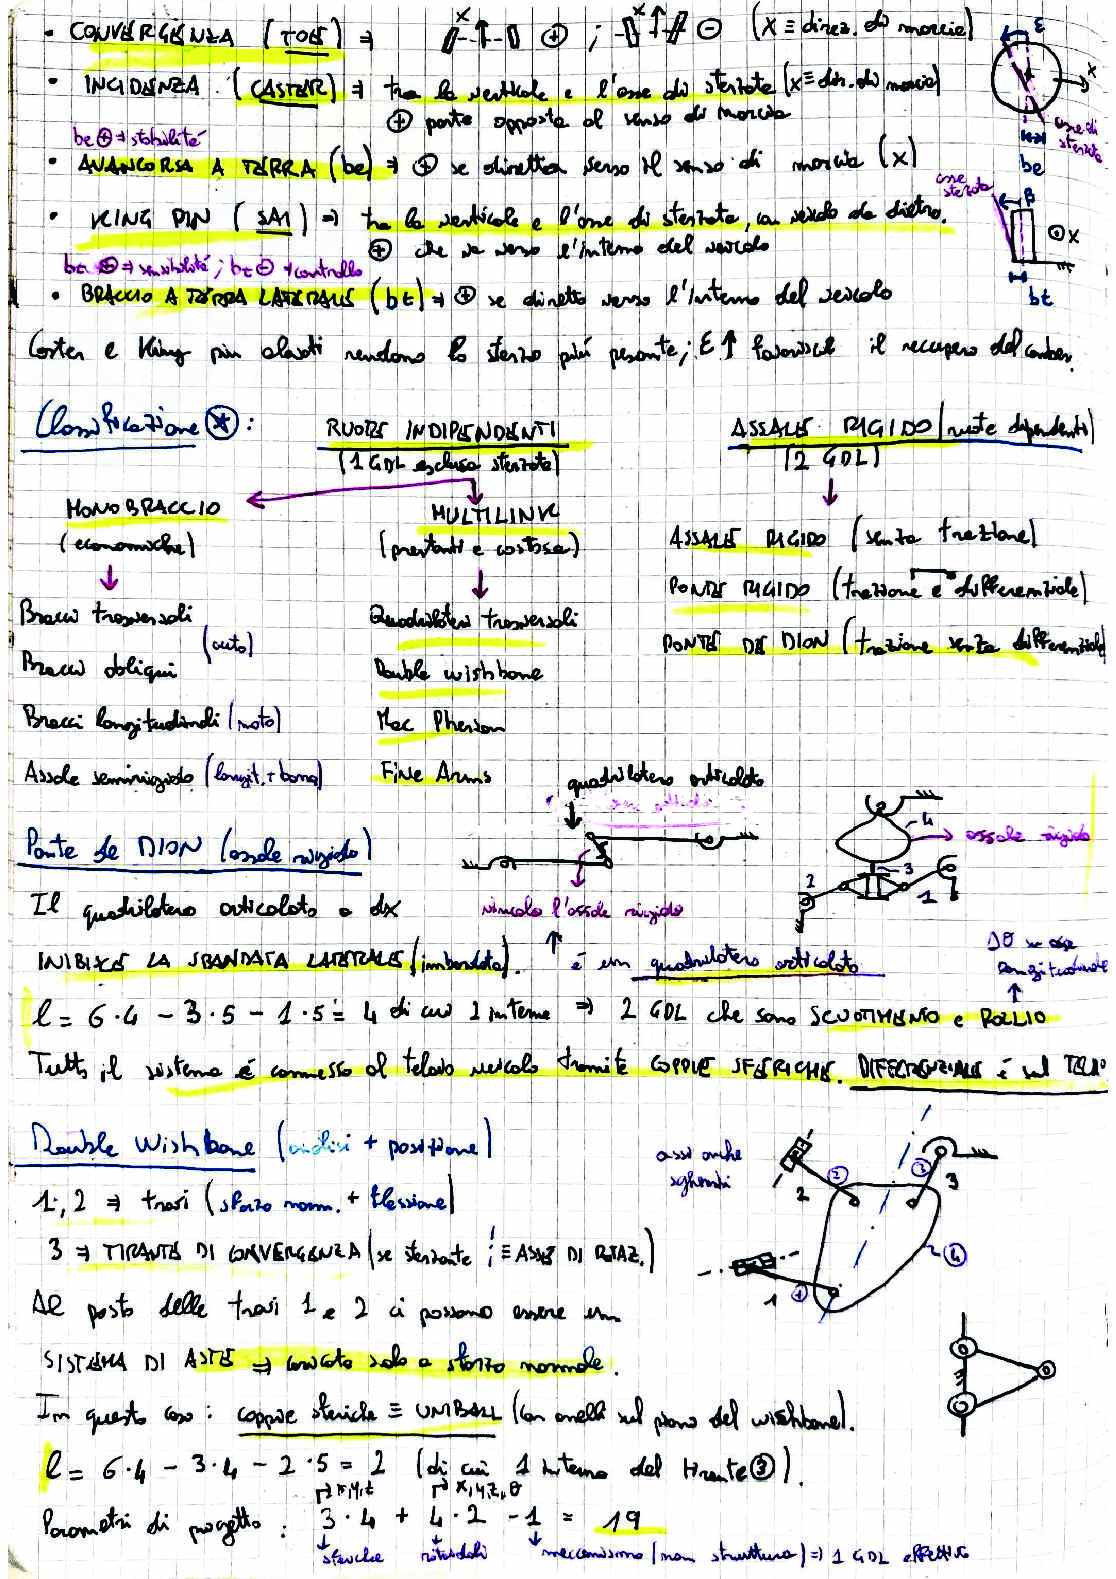 • CONVERGENZA (TOE) ⇒ x ⊕ ; x ⊖ (X ≡ direz. di marcia)
• INCIDENZA (CASTER) ⇒ tra la verticale e l'asse di sterzata (x ≡ dir. di marcia)
⊕ parte opposta al senso di marcia
ε
x
asse di sterzata
be
be ⊕ → stabilità
• AVANCORSA A TERRA (be) ⇒ ⊕ se diretta verso il senso di marcia (x)
• KING PIN (SAI) ⇒ tra la verticale e l'asse di sterzata, con veicolo da dietro.
⊕ che va verso l'interno del veicolo
asse sterzata
β
⊙ x
bt
bt ⊕ ⇒ sensibilità ; bt ⊖ → controllo
• BRACCIO A TERRA LATERALE (bt) ⇒ ⊕ se diretto verso l'interno del veicolo
Caster e King pin elevati rendono lo sterzo più pesante; ε ↑ favorisce il recupero del camber.
Classificazione ⊛:
RUOTE INDIPENDENTI
(1 GDL esclusa sterzata)
ASSALE RIGIDO (ruote dipendenti)
(2 GDL)
MONOBRACCIO
(economiche)
MULTILINK
(prestanti e costose)
ASSALE RIGIDO (senza trazione)
PONTE RIGIDO (trazione e differenziale)
PONTE DE DION (trazione senza differenziale)
Bracci trasversali
(auto)
Bracci obliqui
Bracci longitudinali (moto)
Assale semirigido (longit. + barra)
Quadrilateri trasversali
Double wishbone
Mac Pherson
Five Arms
quadrilatero articolato
Ponte de DION (assale rigido)
4
assale rigido
3
2
1
Il quadrilatero articolato a dx
vincola l'assale rigido
INIBISCE LA SBANDATA LATERALE (imbardata).
↑ è un quadrilatero articolato
Δθ su asse longitudinale
l = 6·4 − 3·5 − 1·5 = 4 di cui 2 interne ⇒ 2 GDL che sono SCUOTIMENTO e ROLLIO
Tutto il sistema è connesso al telaio veicolo tramite COPPIE SFERICHE. DIFFERENZIALE è sul TELAIO
Double Wishbone (analisi + posizione)
assi anche sghembi
2 ② ③ 3
1 ① ④
1; 2 ⇒ travi (sforzo norm. + flessione)
3 ⇒ TIRANTE DI CONVERGENZA (se sterzante ¦ ≡ ASSE DI ROTAZ.)
Al posto delle travi 1 e 2 ci possono essere un
SISTEMA DI ASTE ⇒ caricato solo a sforzo normale.
In questo caso : coppie sferiche ≡ UNIBALL (con anelli sul piano del wishbone).
l = 6·4 − 3·4 − 2·5 = 2 (di cui 1 interno del tirante ③).
x,y,z x,y,z,θ
Parametri di progetto : 3·4 + 4·2 − 1 = 19
sferiche rotoidali meccanismo (non struttura) ⇒ 1 GDL effettivo